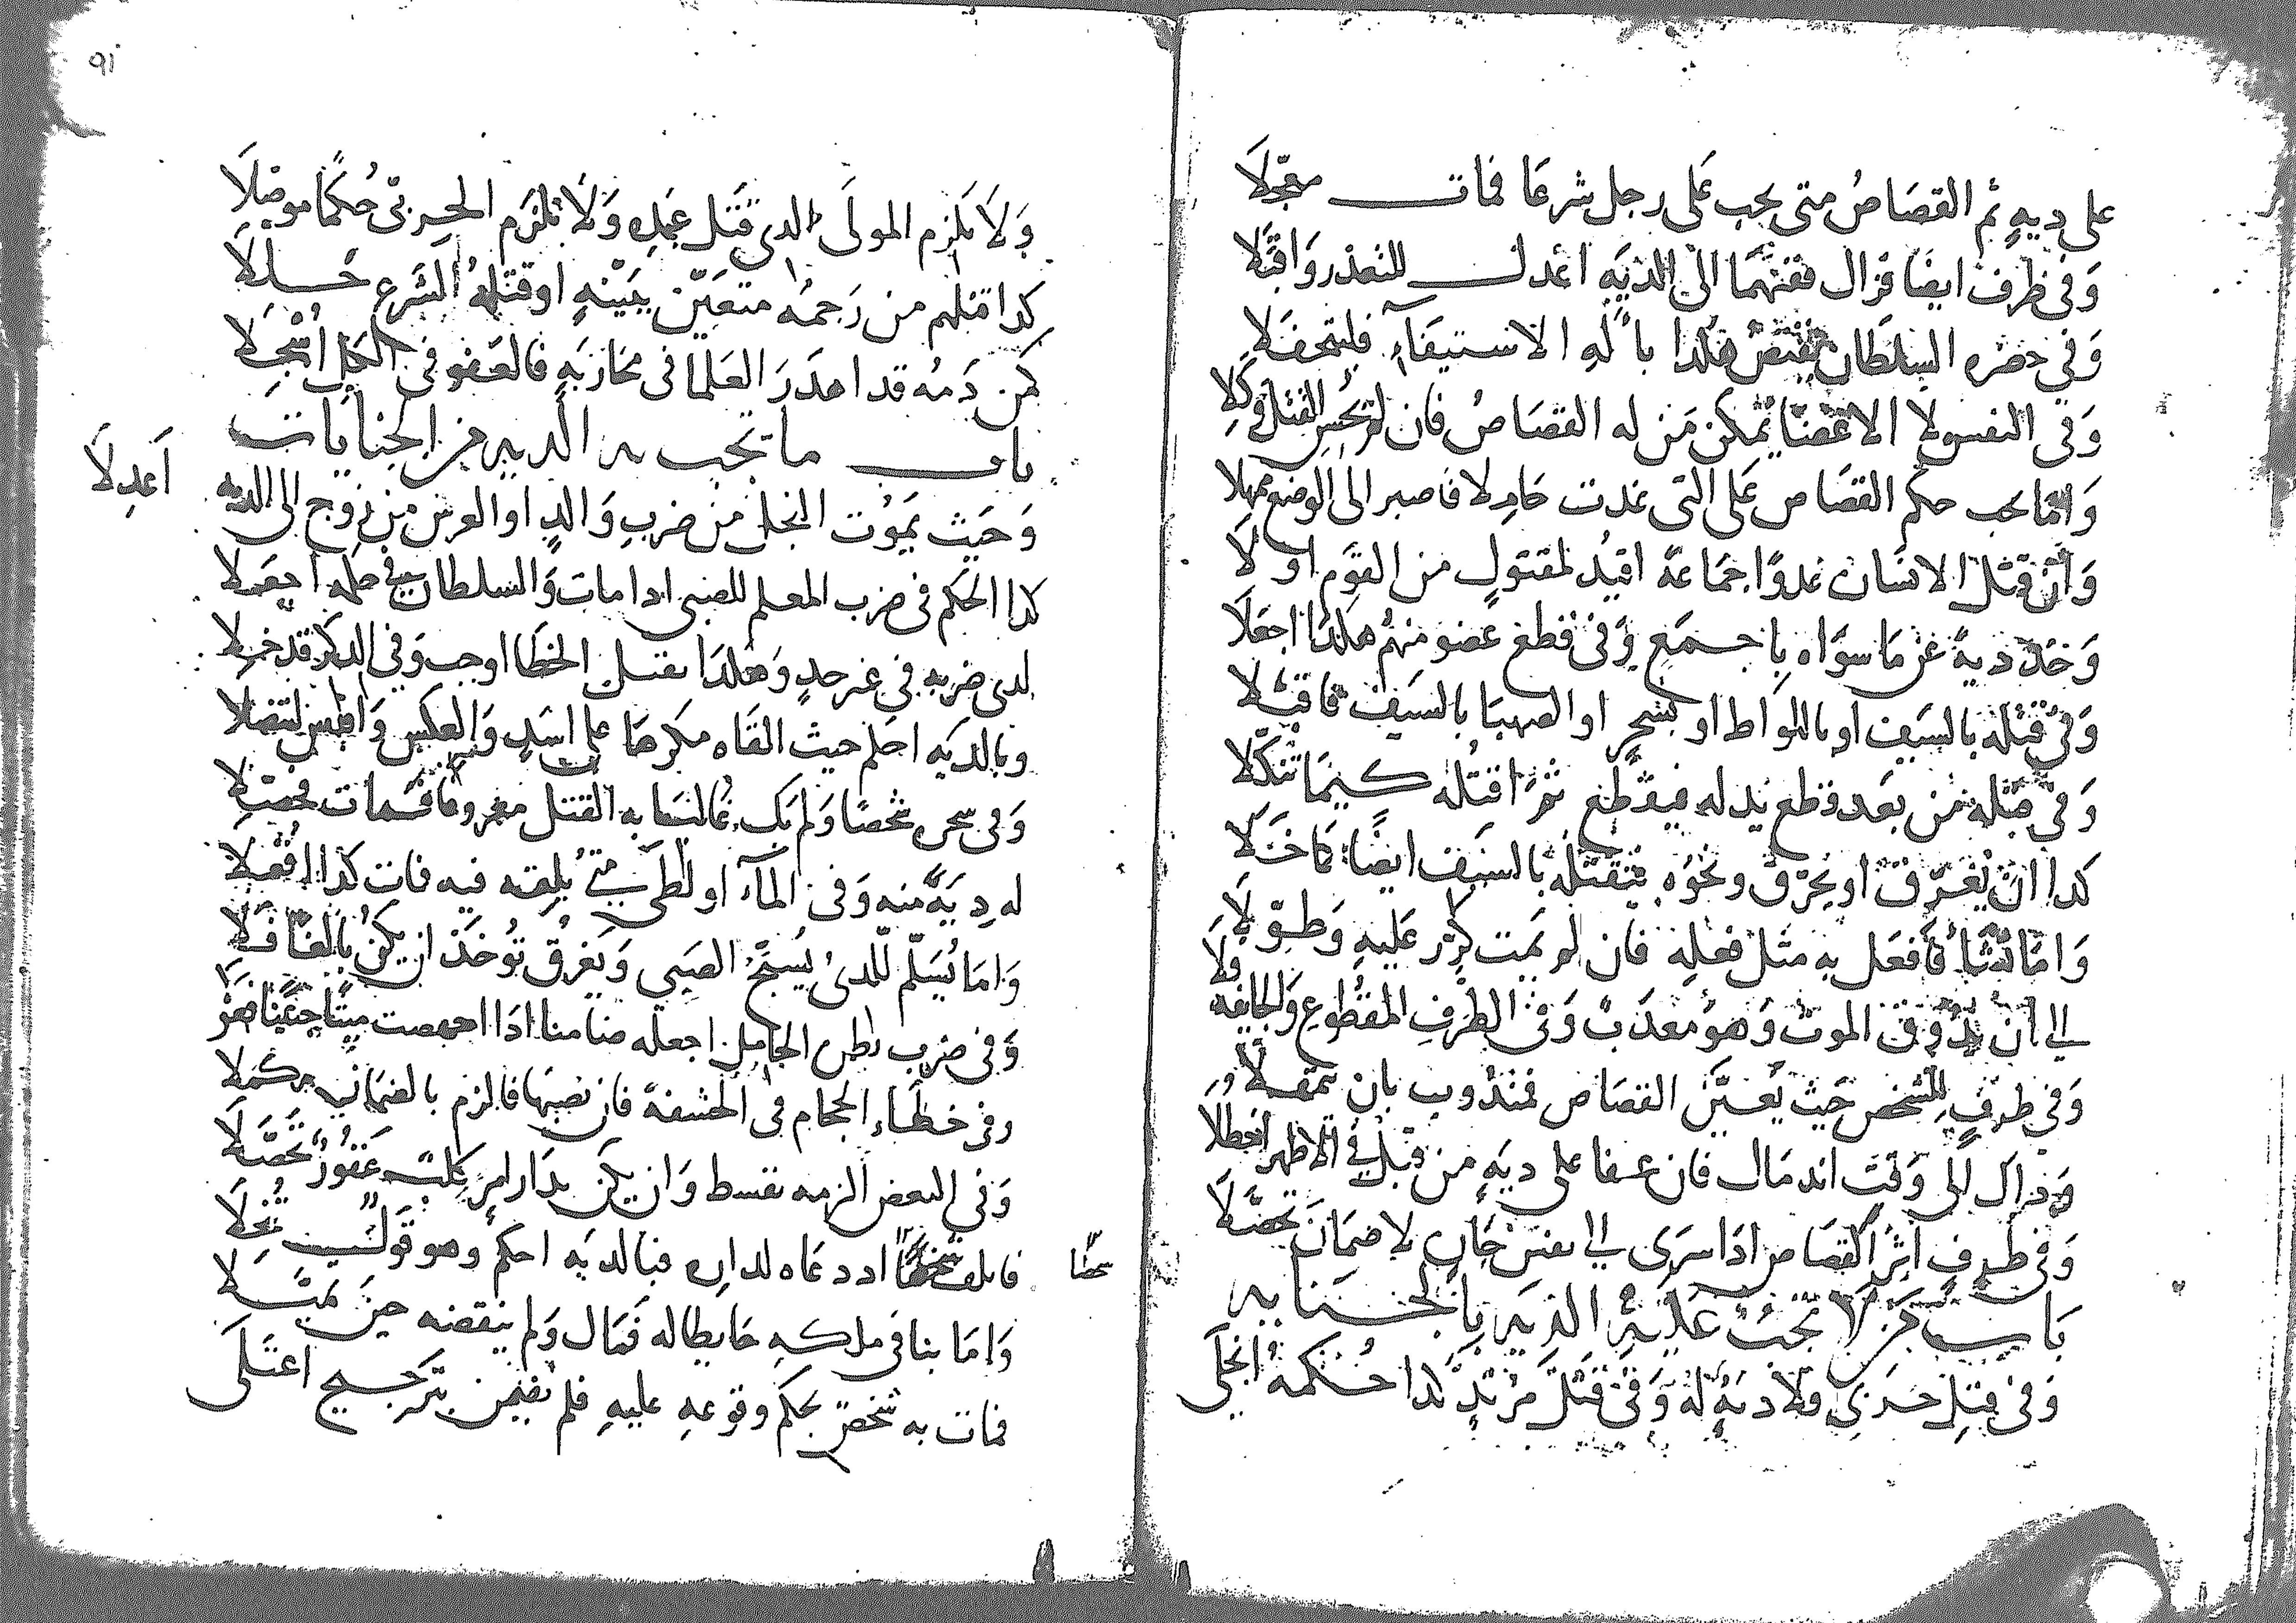 على ديه ثم القصاص متى يجب على رجل شرعا فمات معجلا
وفي طرف ايضا فزال فقنهما الى الديه اعدل للتعذر واقبلا
وفي حضره السلطان يقتص هكذا باله الاستيفاء فلتحفلا
وفي النفس لا الاعضا يمكن من له القصاص فان لم يحسن القتل وكلا
واما يجب حكم القصاص على التي غدت حاملا فاصبر الى الوضع ممهلا
وان قتل الانسان عدوا جماعة اقيد لمقتول من القوم اولا
وخذ دية عن ما سواه باجمع وفي قطع عضو منهم هكذا اجعلا
وفي قتله بالسيف او باللواط او بسحر او الصهبا بالسيف فاقتلا
وفي قتله من بعد قطع يد له فيقطع ثم اقتله كيما تنكلا
كذا ان يغرق او يحرق ونحوه يتقتله بالسيف ايضا
واما تشا فافعل به مثل فعله فان لم يمت كرر عليه وطولا
الى ان يذوق الموت وهو معذب وفي الطرف المقطوع والجايفه ولا
وفي طرف للشخص حيث تعين القصاص فمندوب بان تمهلا
وذاك الى وقت اندمال فان عفا على ديه من قبل في الاظهر احظلا
وفي طرف اثر القصاص اذا سرى الى نفس جان لا ضمان تحصلا
باب من لا تجب عليه الديه بالجنايه
وفي قتل حربي ولا دية له وفي قتل مرتد كذا حكمه انجلى
ولا يلزم المولى الذي قتل عبده ولا يلزم الحربي حكما موصلا
كذا قتلهم من رجمه متعين ببينه او قتله الشرع حللا
كمن دمه قد اهدر العلما في محاربه فالعفو في الكل اسجلا
باب ما تجب به الديه من الجنايات
وحيث يموت النجل من ضرب والد او العرس من زوج الى الديه
اعدلا
كذا الحكم في ضرب المعلم للصبي اذا مات والسلطان في حكمه اجعلا
لدى ضربه في غير حد وهكذا بقتل الخطا اوجب وفي الذكر قد خلا
وبالديه احكم حيث القاه مكرها على اسد والعكس
وفي سحر شخصا ولم يك غالبا به القتل معروفا فمات فحصلا
له دية منه وفي الماء او لظى متى يلقه فيه فمات كذا افعلا
واما يسلم للذي يسبح الصبي ويغرق تؤخذ ان يكن بالغا فلا
وفي ضرب بطن الحامل اجعله ضامنا اذا اجهضت ميتا جنينا
وفي خطاء الحجام في الحشفة فان نصبها فالزم بالضمان مكملا
وفي البعض الزمه بقسط وان يكن بدار امر كلب عقور تحصلا
فاتلف شخصا اذ دعاه لداره فبالديه احكم وهو قول نخلا
شخصا
واما بنا في ملكه حايطا له فمال ولم ينقضه حين تميلا
فمات به شخص بحكم وقوعه عليه فلم يضمن بترجيح اعتلى